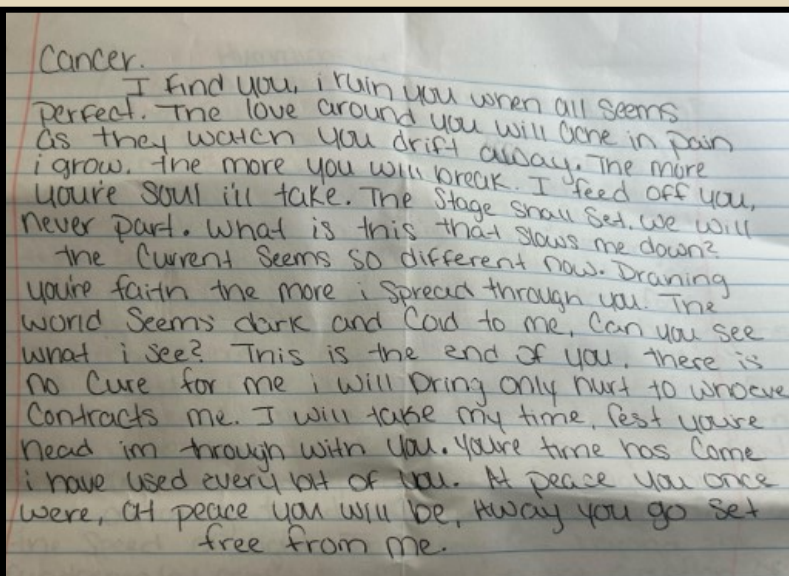 Cancer.
I find you, i ruin you when all seems
perfect. The love around you will acne in pain
as they watch you drift away. The more
i grow. the more you will break. I feed off you,
youre soul i'll take. The Stage shall Set. We will
never part. What is this that slows me down?
the Current Seems so different now. Draning
you're faith the more i Spread through you. The
world Seems dark and Cold to me, Can you see
what i see? This is the end of you, there is
no Cure for me i will bring only hurt to whoeve
Contracts me. I will take my time, rest you're
head im through with you. You're time has Come
i have used every bit of you. At peace you once
were, at peace you will be, Away you go Set
free from me.